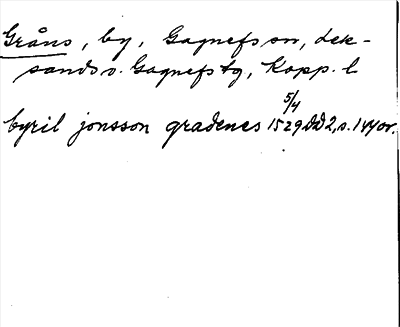 Gråns, by, Gagnefs sn, Lek-
sands o. Gagnefs tg, Kopp. l
byril jonsson gradenes 1529 5/4 DD 2, s. 144 or.